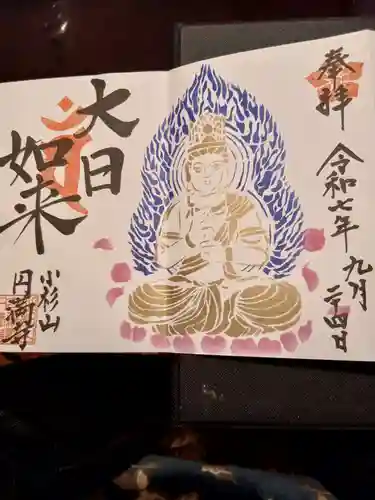 奉拝
令和七年
九月
二十四日
大日
如来
小杉山
円満寺